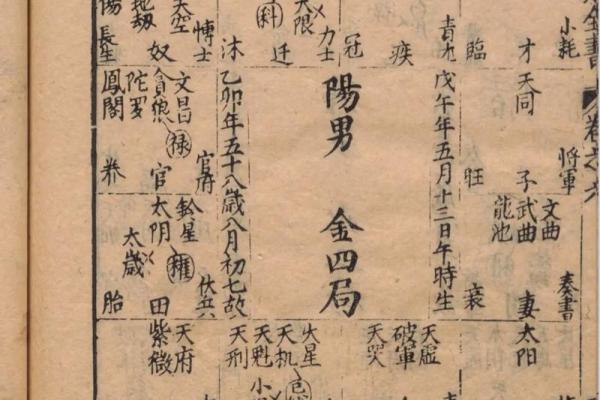 全書
卷之六
小耗
才
臨
青龙
疾
冠
力士
大限
科
迁
沐
博士
天空
奴
地劫
長生
天同
將軍
子
旺
文曲
武曲
龍池
奏書
妻
衰
戊午年五月十三日午時生
陽男 金四局
乙卯年五十八歲八月初七故
文昌
貪狼
禄
陀罗
鳳閣
官府
官
养
鈴星
太阴
權
太歲
伏兵
田
胎
太阳
天虛
破軍
天哭
火星
天机
天魁
天刑
天府
紫微